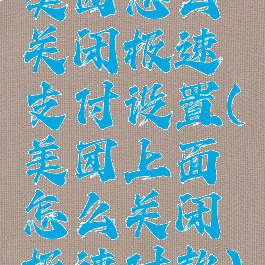 美团怎么
关闭极速
支付设置(
美团上面
怎么关闭
极速付款)